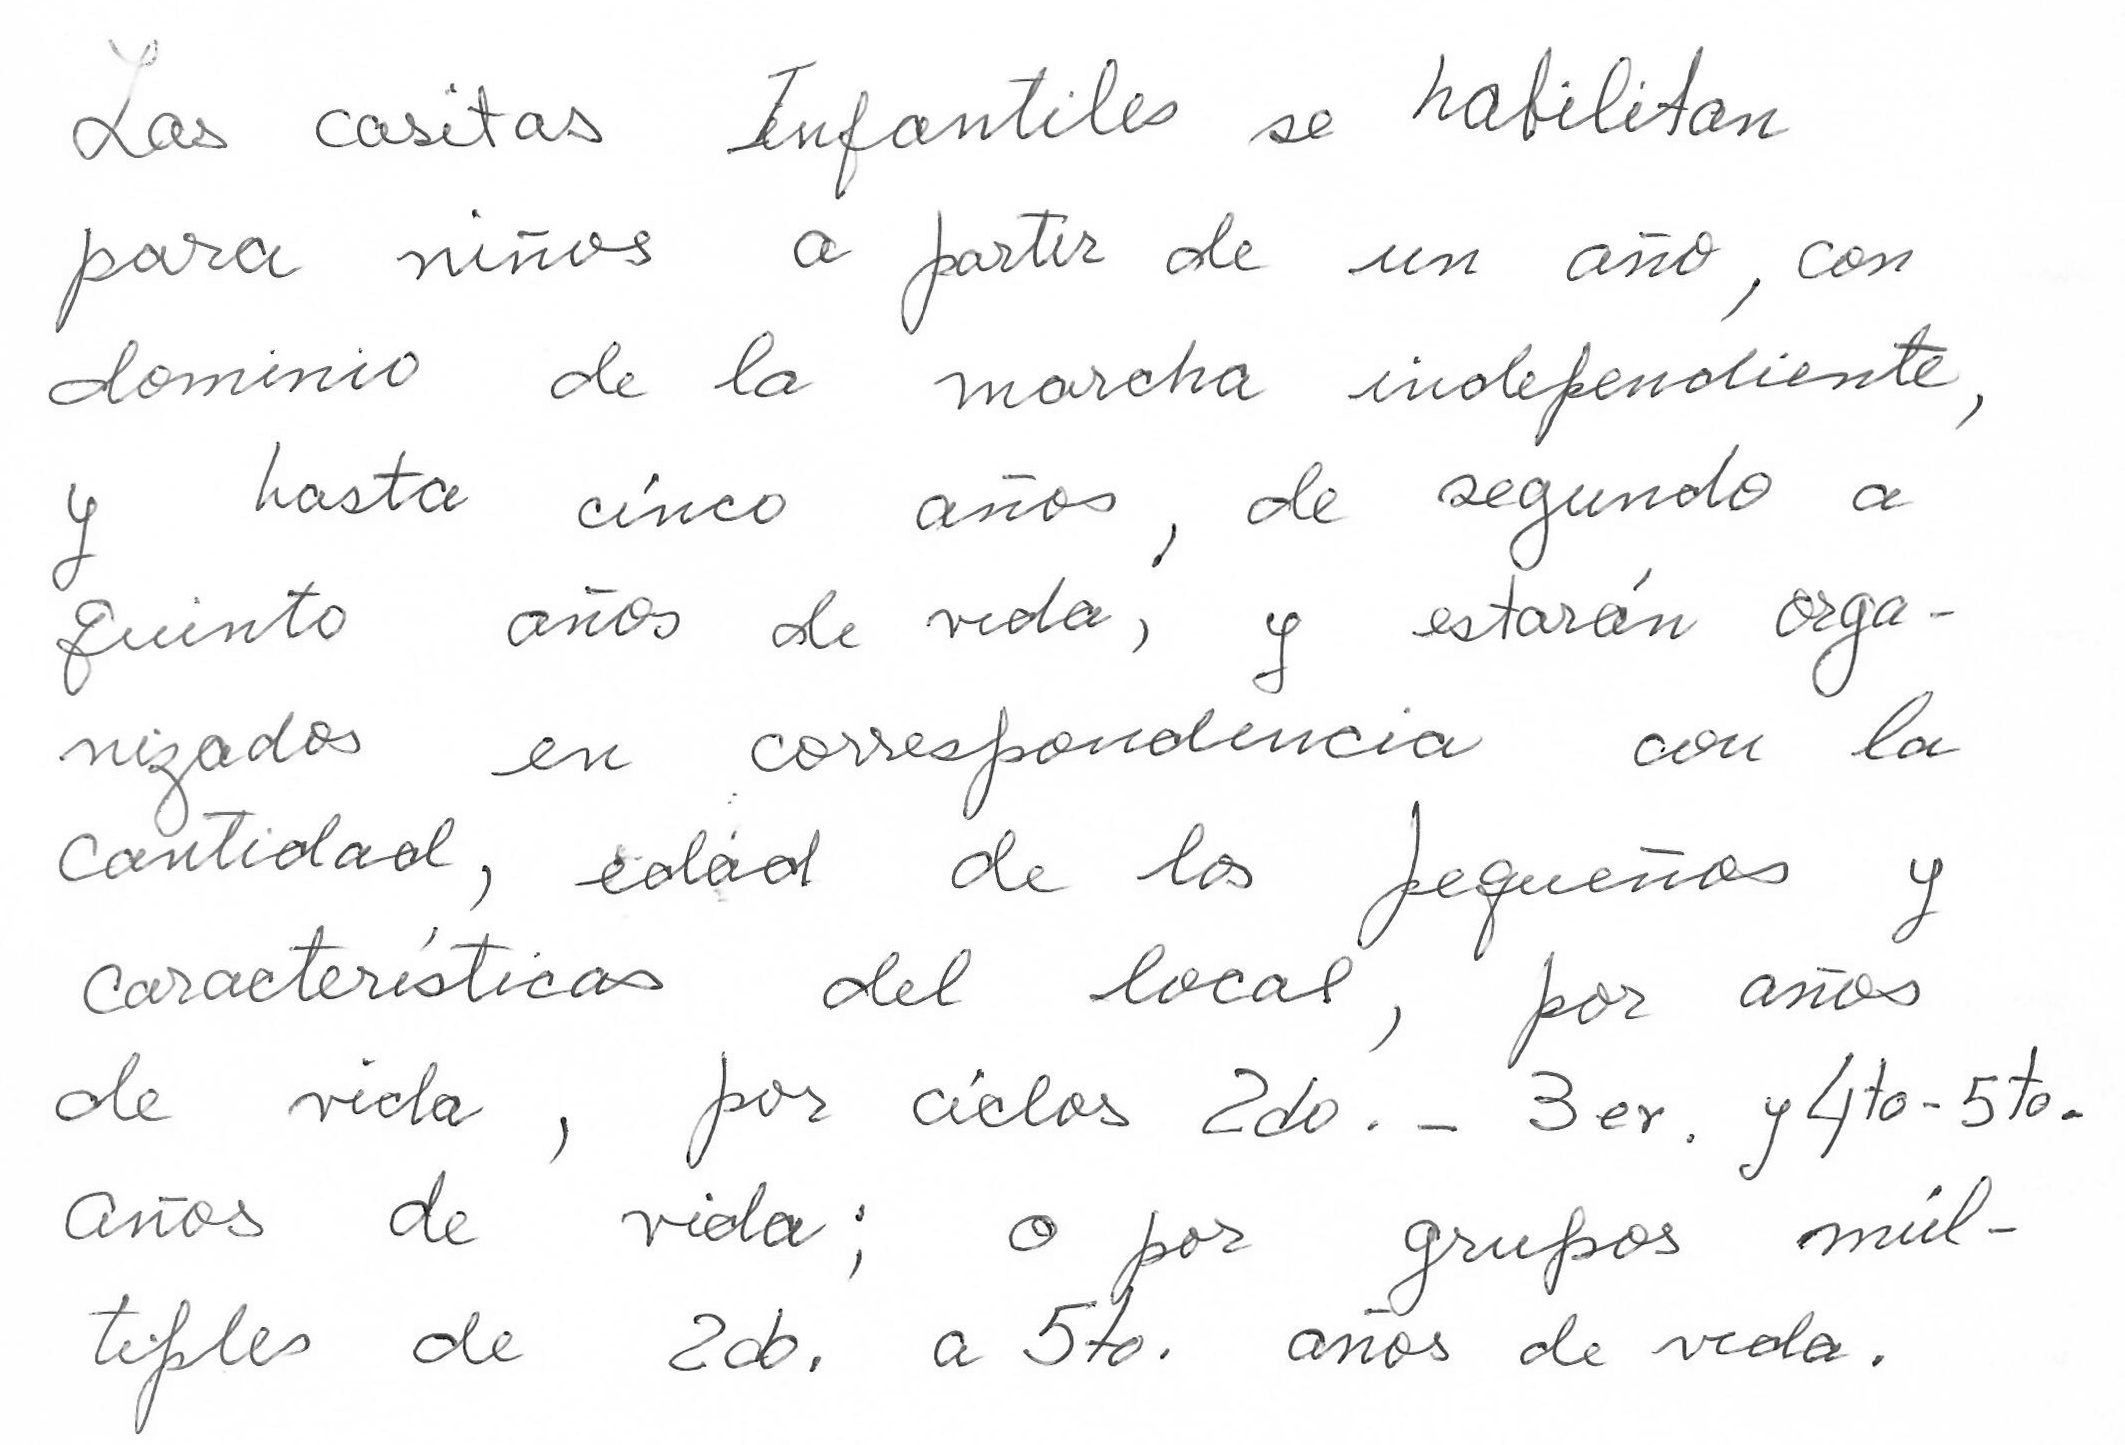 Las casitas Infantiles se habilitan
para niños a partir de un año, con
dominio de la marcha independiente,
y hasta cinco años, de segundo a
quinto años de vida, y estarán orga-
nizados en correspondencia con la
cantidad, edad de los pequeños y
características del local, por años
de vida, por ciclos 2do. - 3er. y 4to-5to.
años de vida; o por grupos múl-
tiples de 2do. a 5to. años de vida.